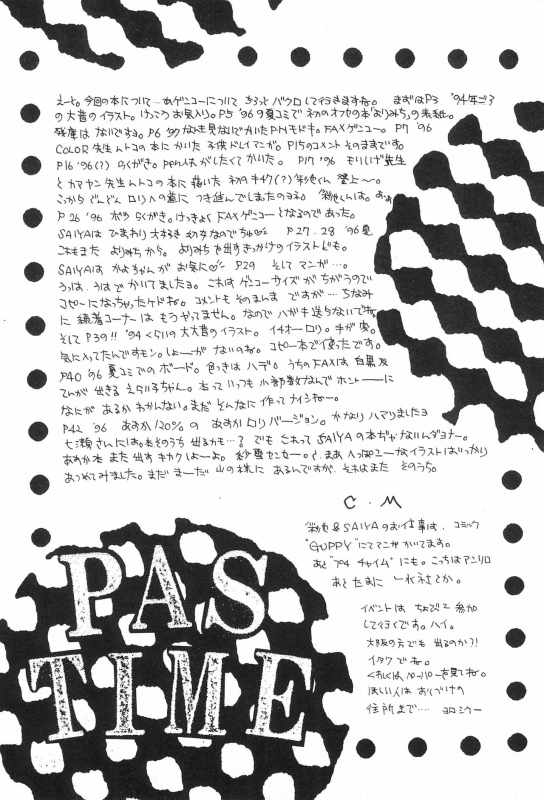 えーと。今回の本について…あゲンコーについて ちょっと バクロして行きますね。 まずはP3 '94年ごろ
の大昔のイラスト。けっこうお気入り。P5 '96の夏コミで 初のオフセの本「よりみち」の表紙。
残庫はないですヨ。P6 なにも見ないでかいたPHモドキ。FAXゲンコー。P7 '96
COLOR 先生んトコの本に かいた 子供ドレイマンガ。P15のコメント そのままです。
P16 '96(?) らくがき。pen入れがしたくてかいた。 P17 '96 もりしげ先生
とカマヤン先生んトコの本に描いた 初のキチク(?) 彩色くん 登上〜。
こっからどんどん ロリへの道に つき進んでしまったのヨネ。
P26 '96 ボツらくがき。けっきょくFAXゲンコーとなるのであった。
SAIYAはひまわり 大好き 幼女なのでちゅ♡ P27.28 '96夏
これもまた よりみちから。 よりみちを出すきっかけのイラストども。
SAIYAは かよちゃんが お気に♡ P29 そして マンガ…。
うは、うはで かいてましたヨ。これは ゲンコーサイズが ちがうので
コピーになっちゃったケドね。コメントもそのまんま ですが… ちなみ
に 続着コーナーは もうやってません。なので ハガキ送らないでネ。
そして P39!! '94くらいの大大昔のイラスト。イチオーロリ。手が変。
気に入ってたんですモン。しょーが ないのね。コピー本で使ったです。
P40 96夏コミでのボード。色っきは ハデ。うちのFAXは 白黒反
てんが 出きる えらい子ちゃん。本っていっても 小部数なんで ホントーーに
なにが あるか わかんない。まだ そんなに 作ってナイシねー。
P42 '96 あすか120%の あすかロリバージョン。かなり ハマりましたヨ
七瀬さんには。本そのうち 出るかも…? でも これって SAIYAの本ぢゃないんダヨナー。
あすか本 また出す キカクはよーよ。 と、まあ いっぱつユーかなイラストばっかり
あつめてみました。まだ まーだ 山の様に あるんですが、それはまた そのうち。
C.M
彩色&SAIYAのお仕事は、コミック
"GUPPY"にてマンガかいてます。
あと "プチチャイム"にも。こっちはアンソロ
あと たまに 一水社とか。
イベントは ちょびっと参加
して行くです。ハイ。
大阪の方でも 出るのか?!
イタクでね。
くわしくは、ペーパーを見てね。
ほしい人は おくづけの
住所まで…. ヨロシクー
PAS
TIME